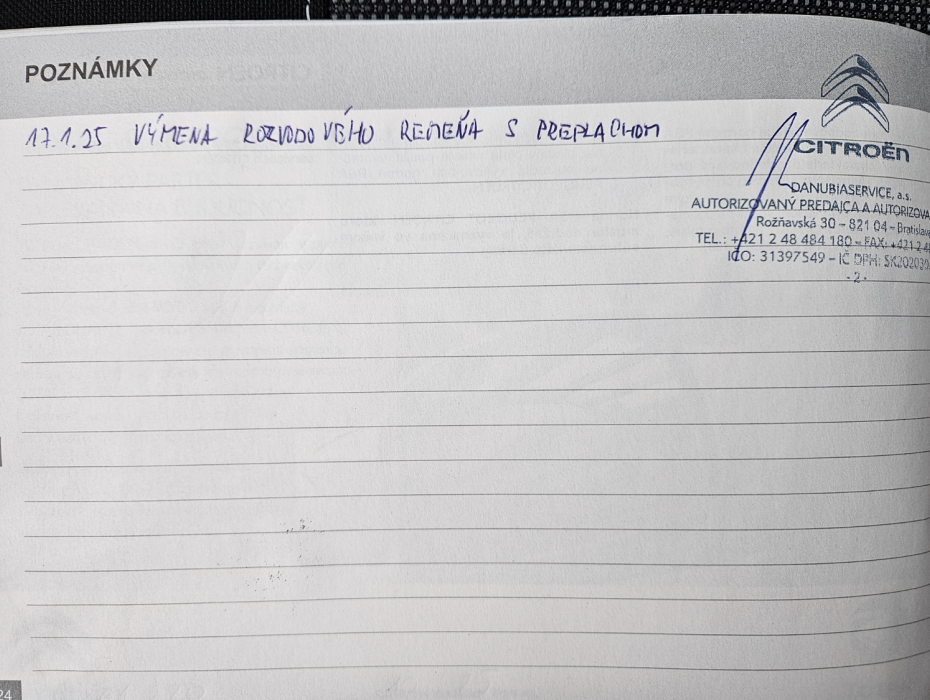 POZNÁMKY
17.1.25 VÝMENA ROZVODOVÉHO REMEŇA S PREPLACHOM
CITROËN
DANUBIASERVICE, a.s.
AUTORIZOVANÝ PREDAJCA A AUTORIZOVA
Rožňavská 30 – 821 04 – Bratislava
TEL.: +421 2 48 484 180 – FAX: +421 2 48
IČO: 31397549 – IČ DPH: SK202030
- 2 -
24